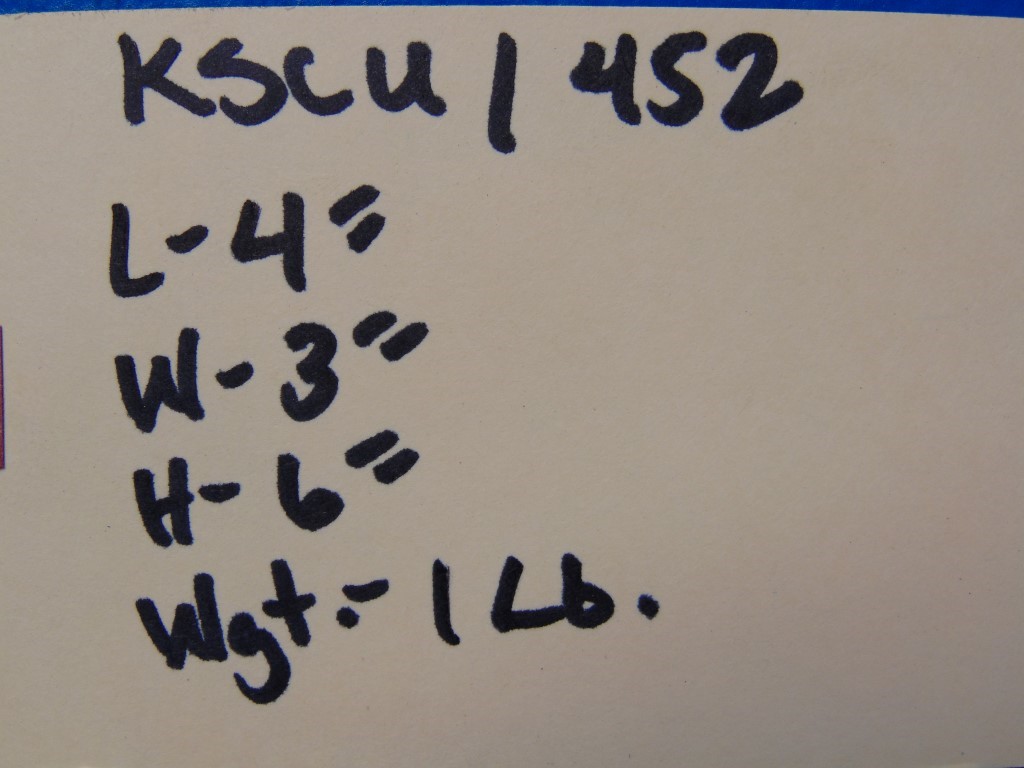 KSCU/452
L-4"
W-3"
H-6"
Wgt.- 1 Lb.